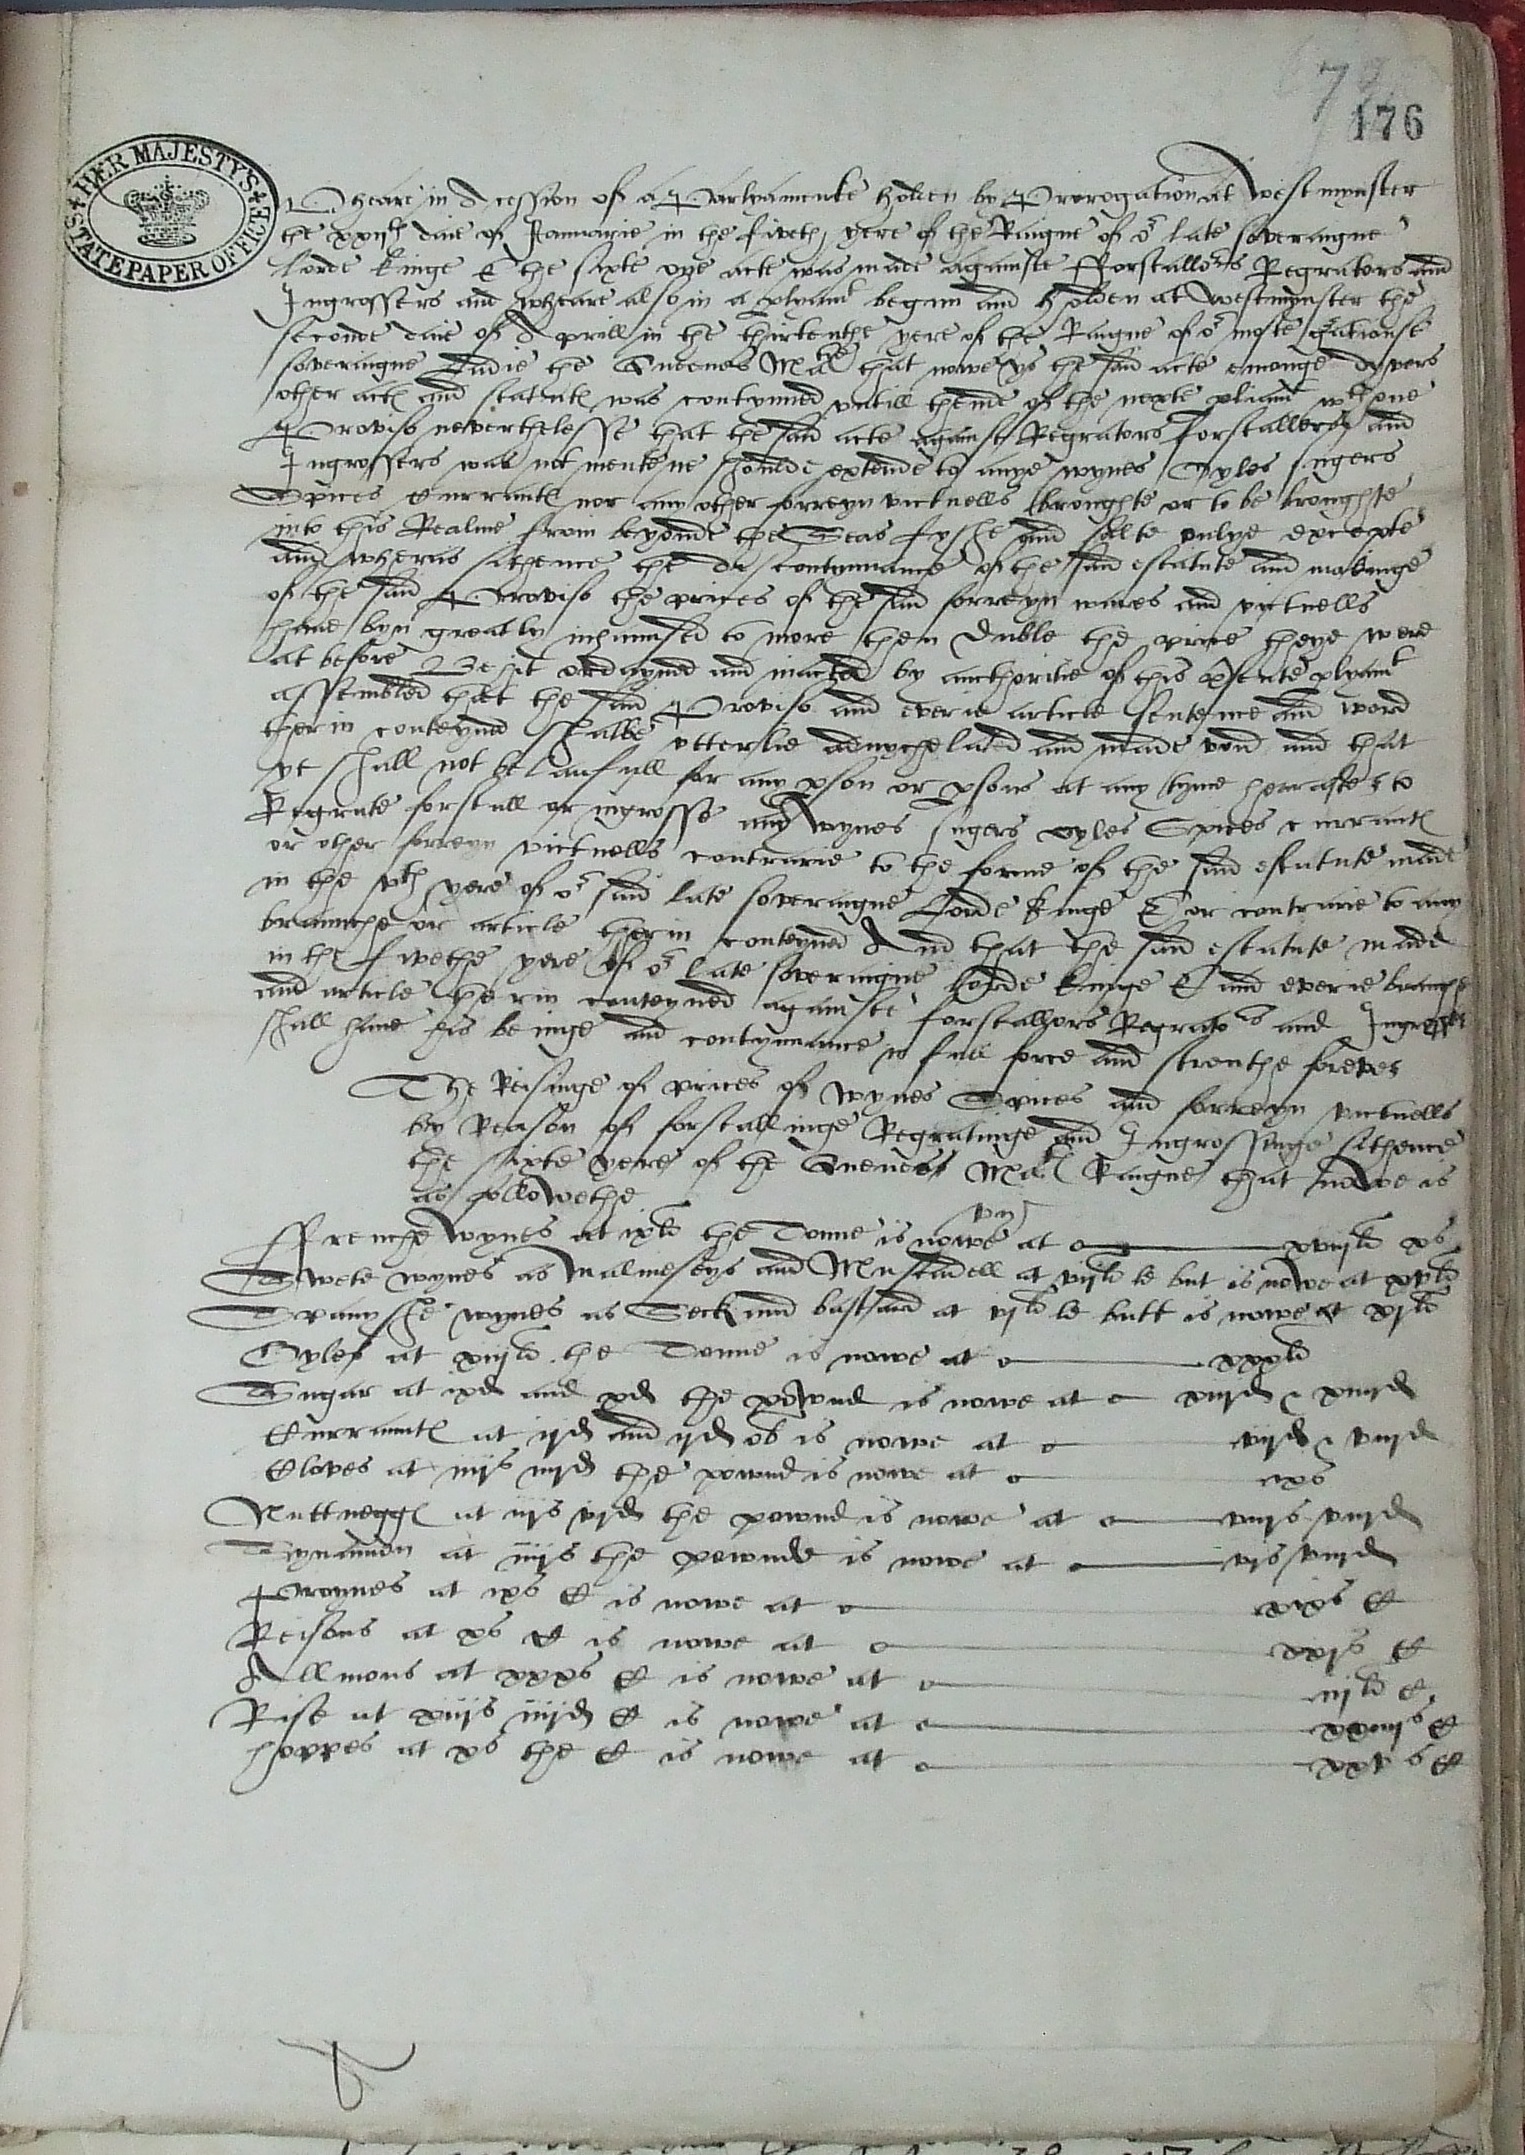 79
176
HER MAJESTY'S STATE PAPER OFFICE
Wheare in A cession of a Parlyamente holden by Prorogation at westmynster
the xxiijth daie of Januarie in the fiveth yere of the Raigne of or late soveraigne
lorde kinge E the sixte one acte was made againste Fforstallors Regrators and
Ingrossers and wheare also in a plyamt begun and holden at westmynster the
seconde daie of Aprill in the thirtenthe yere of the Raigne of or moste gratiouse
soveraigne Ladie the Queenes Matie that nowe ys the said acte emonge dyvers
other actes and statutes was contynued untill thende of the nexte pliamt wth one
Proviso neverthelesse that the said acte against Regrators forstallers and
Ingrossers was not mente ne shoulde extende to anye wynes Oyles sugers
Spices Currantes nor any other forreyn victuells broughte or to be broughte
into this Realme from beyonde the Seas fyshe and salte onlye excepte
and wheras sithence the discontynuance of the said estatute and makinge
of the said Proviso the prices of the said forreyn wares and victuells
have byn greatly inhaunsed to more then duble the price theye were
at before Be hit ordayned and inacted by aucthoritie of this psente plyamt
assembled that the said Proviso and everie article sentence and word
therin conteyned shalbe utterlie adnychelated and made voyd and that
yt shall not be laufull for any pson or psons at any tyme hearafter to
Regrate forstall or ingrosse any wynes sugers oyles Spices currantes
or other forreyn victuells contrarie to the forme of the said estatute made
in the vth yere of or said late soveraigne Lorde kinge E or contrarie to any
braunche or article therin conteyned And that the said estatute made
in the fivethe yere of or late soveraigne lorde kinge E and everie braunche
and article therin conteyned againste forstallors Regrators and Ingrossers
shall have his beinge and contynuance in full force and strenthe forever
The Reisinge of prices of wynes Spices and forreyn victuells
by Reason of forstallinge Regratinge and Ingrossinge sithence
the sixte yere of the Quenes Maties Raigne that nowe is
as followethe
Ffrenche wynes at ixli the Tonne is nowe at xviijli xs
Swete wynes as malmeseys and Muskadell at viijli le but is nowe at xvli
Spanyshe wynes as Seck and bastard at vijli le butt is nowe at xijli
Oyles at xiijli the Tonne is nowe at xxxli
Sugar at ixd and xd the pownd is nowe at xviijd
Currantes at ijd and ijd ob is nowe at vijd viijd
Cloves at iiijs iiijd the pownd is nowe at
Nuttnegges at iijs vjd the pownd is nowe at viijs viijd
Synamon at iiijs the pownde is nowe at vjs viijd
Proynes at ixs C is nowe at xixs C
Reisons at xs C is nowe at xxjs C
Allmons at xxxs C is nowe at iijli C
Rise at xiijs iiijd C is nowe at C
hoppes at xs the C is nowe at xxvs C